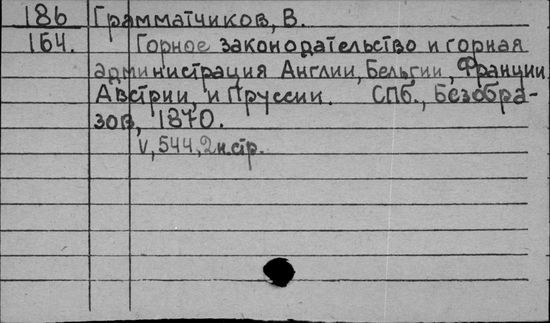 186 Грамматчиков, В.
164. Горное законодательство и горная
администрация Англии, Бельгии, Франции,
Австрии, и Пруссии. СПб., Безобра-
зов, 1870.
V, 544, 2н.стр.